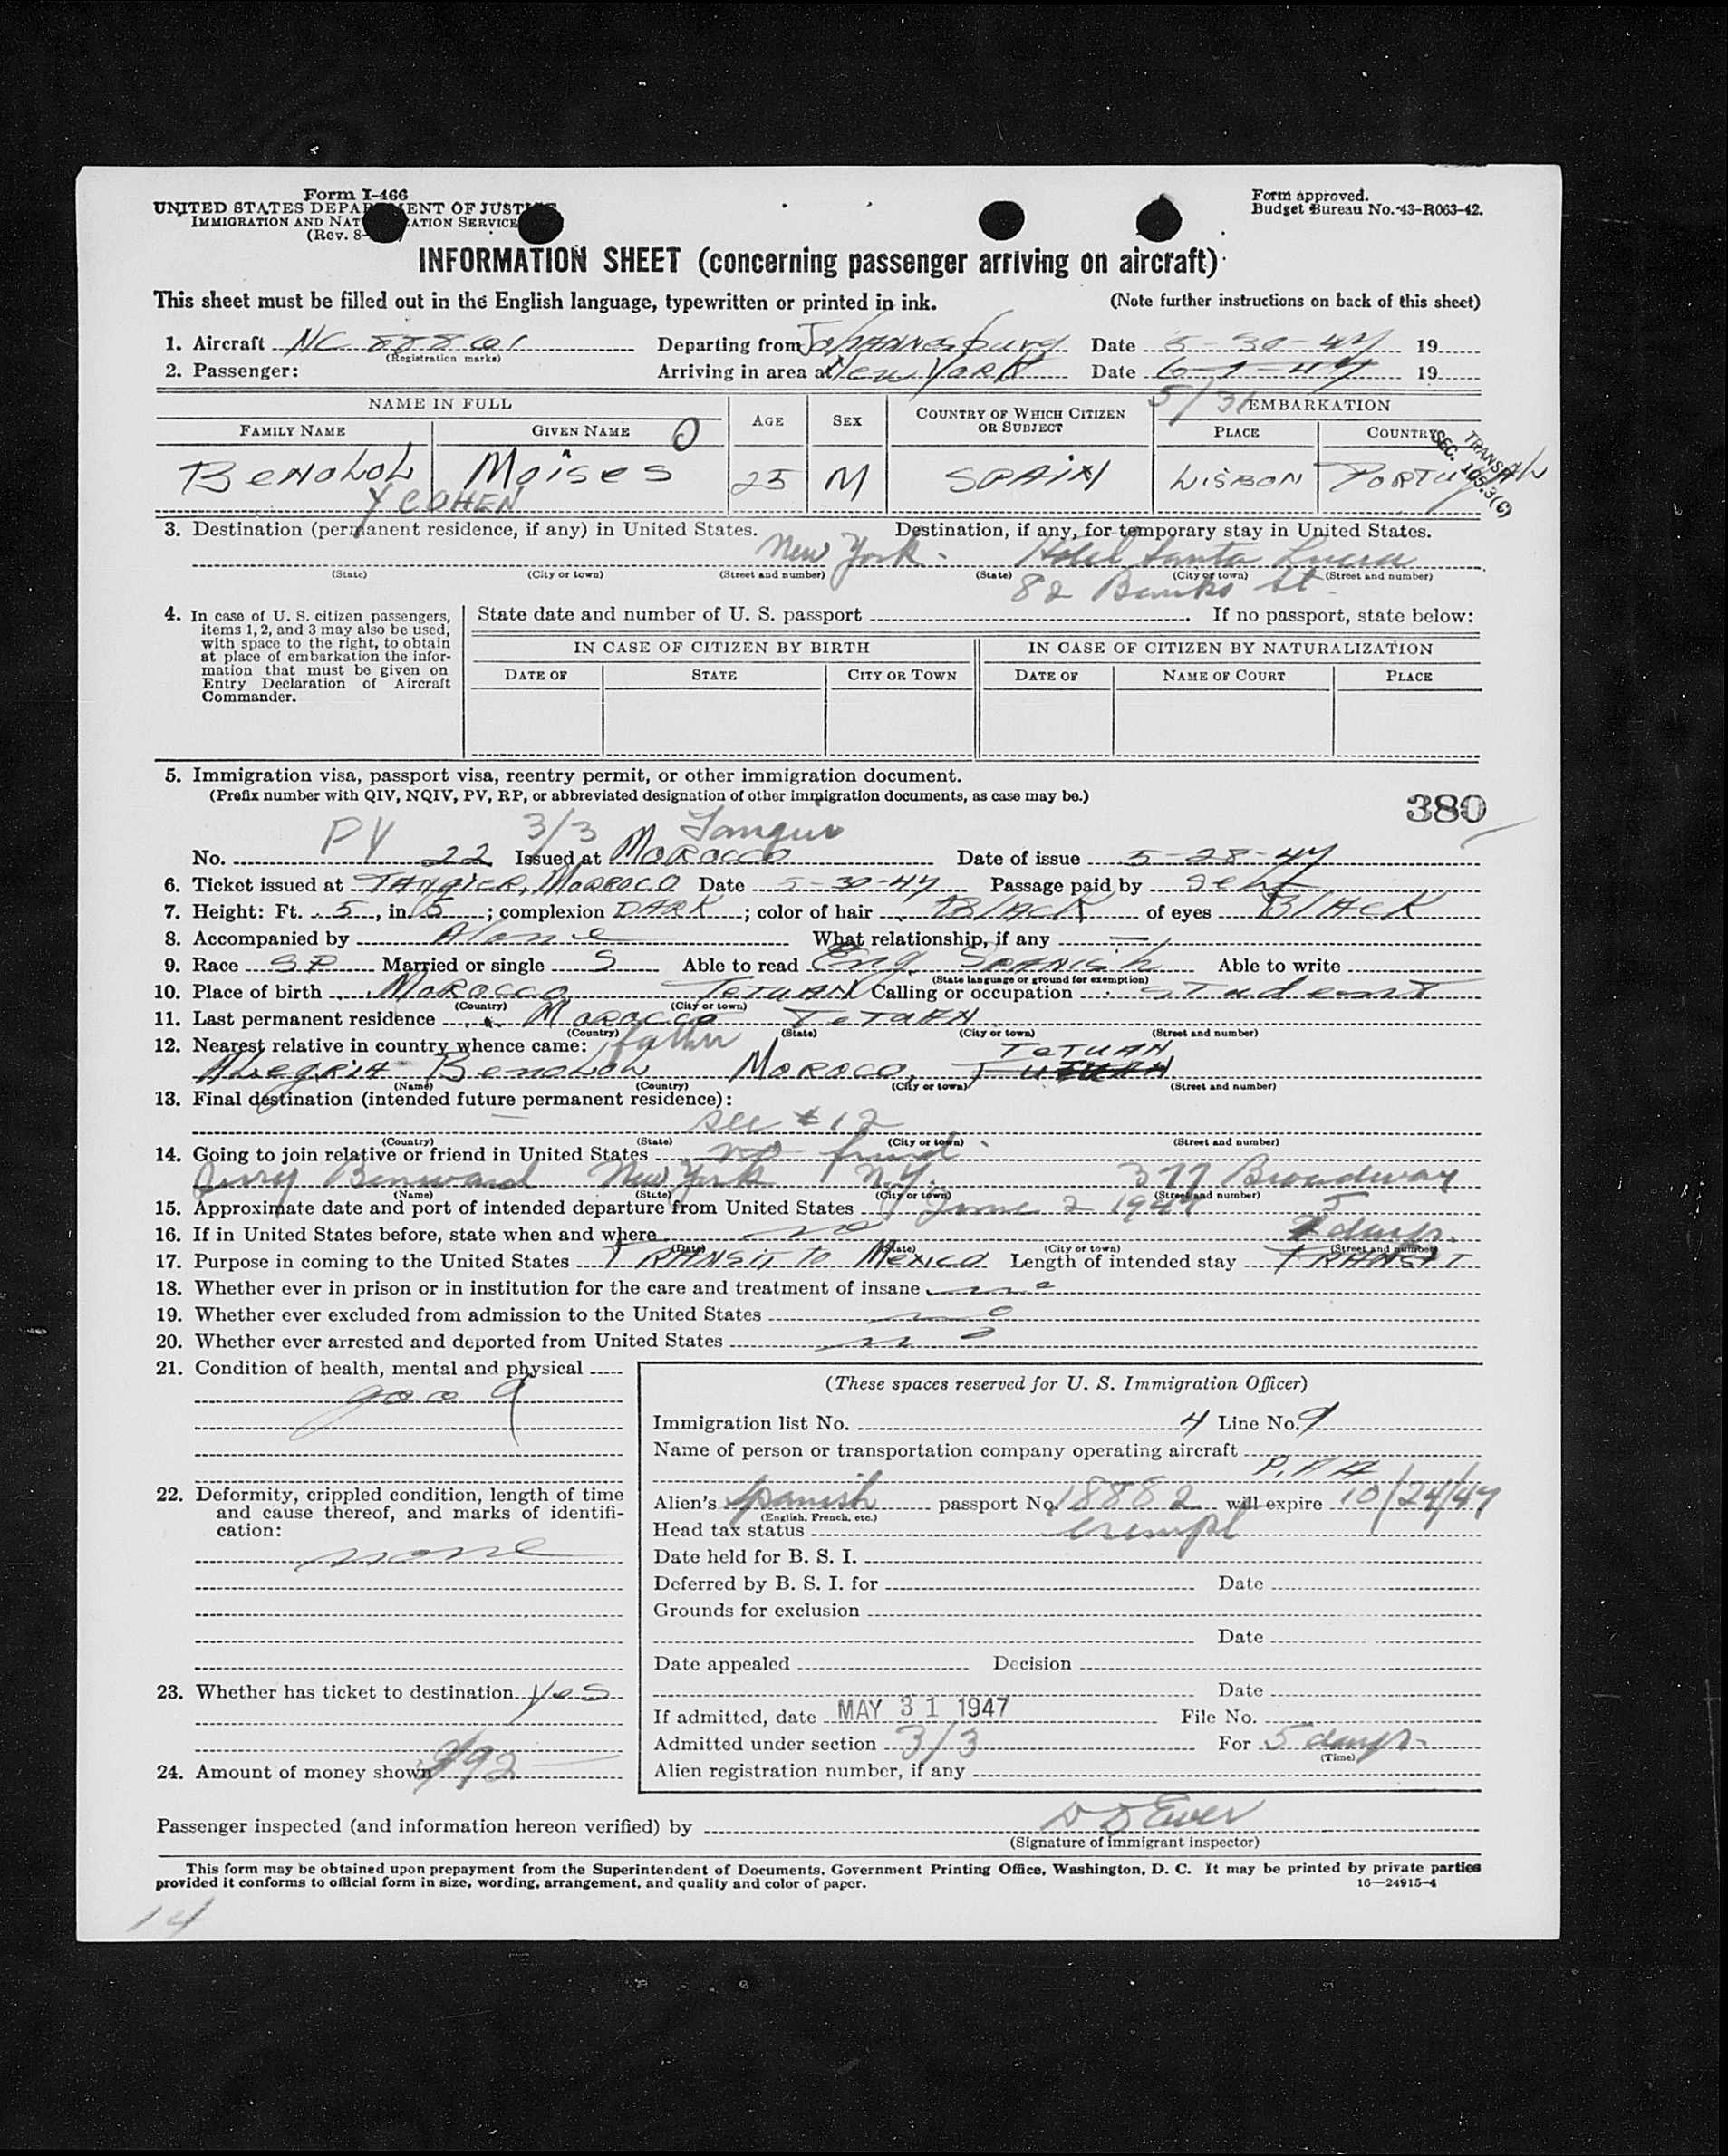 Form I-466
UNITED STATES DEPARTMENT OF JUSTICE
IMMIGRATION AND NATURALIZATION SERVICE
(Rev. 8-
Form approved.
Budget Bureau No. 43-R063-42.
INFORMATION SHEET (concerning passenger arriving on aircraft)
This sheet must be filled out in the English language, typewritten or printed in ink. (Note further instructions on back of this sheet)
1. Aircraft NC 88861 Departing from Johannesburg Date 5-30-47 19
(Registration marks)
2. Passenger: Arriving in area at New York Date 6-1-47 19
5/31
NAME IN FULL AGE SEX COUNTRY OF WHICH CITIZEN OR SUBJECT EMBARKATION
FAMILY NAME GIVEN NAME PLACE COUNTRY
O
TRANSIT
SEC. 105.3(C)
BENOLOL Moises 25 M SPAIN LISBON PORTUGAL
Y COHEN
3. Destination (permanent residence, if any) in United States. Destination, if any, for temporary stay in United States.
New York - Hotel Santa Lucia
(State) (City or town) (Street and number) (State) (City or town) (Street and number)
82 Banks St.
4. In case of U. S. citizen passengers, items 1, 2, and 3 may also be used, with space to the right, to obtain at place of embarkation the information that must be given on Entry Declaration of Aircraft Commander.
State date and number of U. S. passport If no passport, state below:
IN CASE OF CITIZEN BY BIRTH IN CASE OF CITIZEN BY NATURALIZATION
DATE OF STATE CITY OR TOWN DATE OF NAME OF COURT PLACE
5. Immigration visa, passport visa, reentry permit, or other immigration document.
(Prefix number with QIV, NQIV, PV, RP, or abbreviated designation of other immigration documents, as case may be.)
380
3/3 Tangier
No. PV 22 Issued at MOROCCO Date of issue 5-28-47
6. Ticket issued at TANGIER, MOROCO Date 5-30-47 Passage paid by Self
7. Height: Ft. 5, in. 5; complexion DARK; color of hair BLACK of eyes BLACK
8. Accompanied by Alone What relationship, if any —
9. Race SP Married or single S Able to read Eng SPANISH Able to write
(State language or ground for exemption)
10. Place of birth MOROCCO TETUAN Calling or occupation Student
(Country) (City or town)
11. Last permanent residence MOROCCO TETUAN
(Country) (State) (City or town) (Street and number)
12. Nearest relative in country whence came: father
TETUAN
ALEGRIA BENOLOL MOROCO,
(Name) (Country) (City or town) (Street and number)
13. Final destination (intended future permanent residence):
see #12
(Country) (State) (City or town) (Street and number)
14. Going to join relative or friend in United States no friend
Benward New York N.Y. 377 Broadway
(Name) (State) (City or town) (Street and number)
15. Approximate date and port of intended departure from United States June 2 1947
16. If in United States before, state when and where no
(Date) (State) (City or town) (Street and number)
5 days.
17. Purpose in coming to the United States TRANSIT to Mexico Length of intended stay TRANSIT
18. Whether ever in prison or in institution for the care and treatment of insane no
19. Whether ever excluded from admission to the United States no
20. Whether ever arrested and deported from United States no
21. Condition of health, mental and physical
good
22. Deformity, crippled condition, length of time and cause thereof, and marks of identification:
none
23. Whether has ticket to destination Yes
24. Amount of money shown $92
(These spaces reserved for U. S. Immigration Officer)
Immigration list No. 4 Line No. 9
Name of person or transportation company operating aircraft
P.A.A
Alien's Spanish passport No. 18882 will expire 10/24/47
(English, French, etc.)
Head tax status exempt
Date held for B. S. I.
Deferred by B. S. I. for Date
Grounds for exclusion
Date
Date appealed Decision
Date
If admitted, date MAY 31 1947 File No.
Admitted under section 3/3 For 5 days.
(Time)
Alien registration number, if any
Passenger inspected (and information hereon verified) by
(Signature of immigrant inspector)
This form may be obtained upon prepayment from the Superintendent of Documents, Government Printing Office, Washington, D. C. It may be printed by private parties
provided it conforms to official form in size, wording, arrangement, and quality and color of paper. 16—24915-4
14